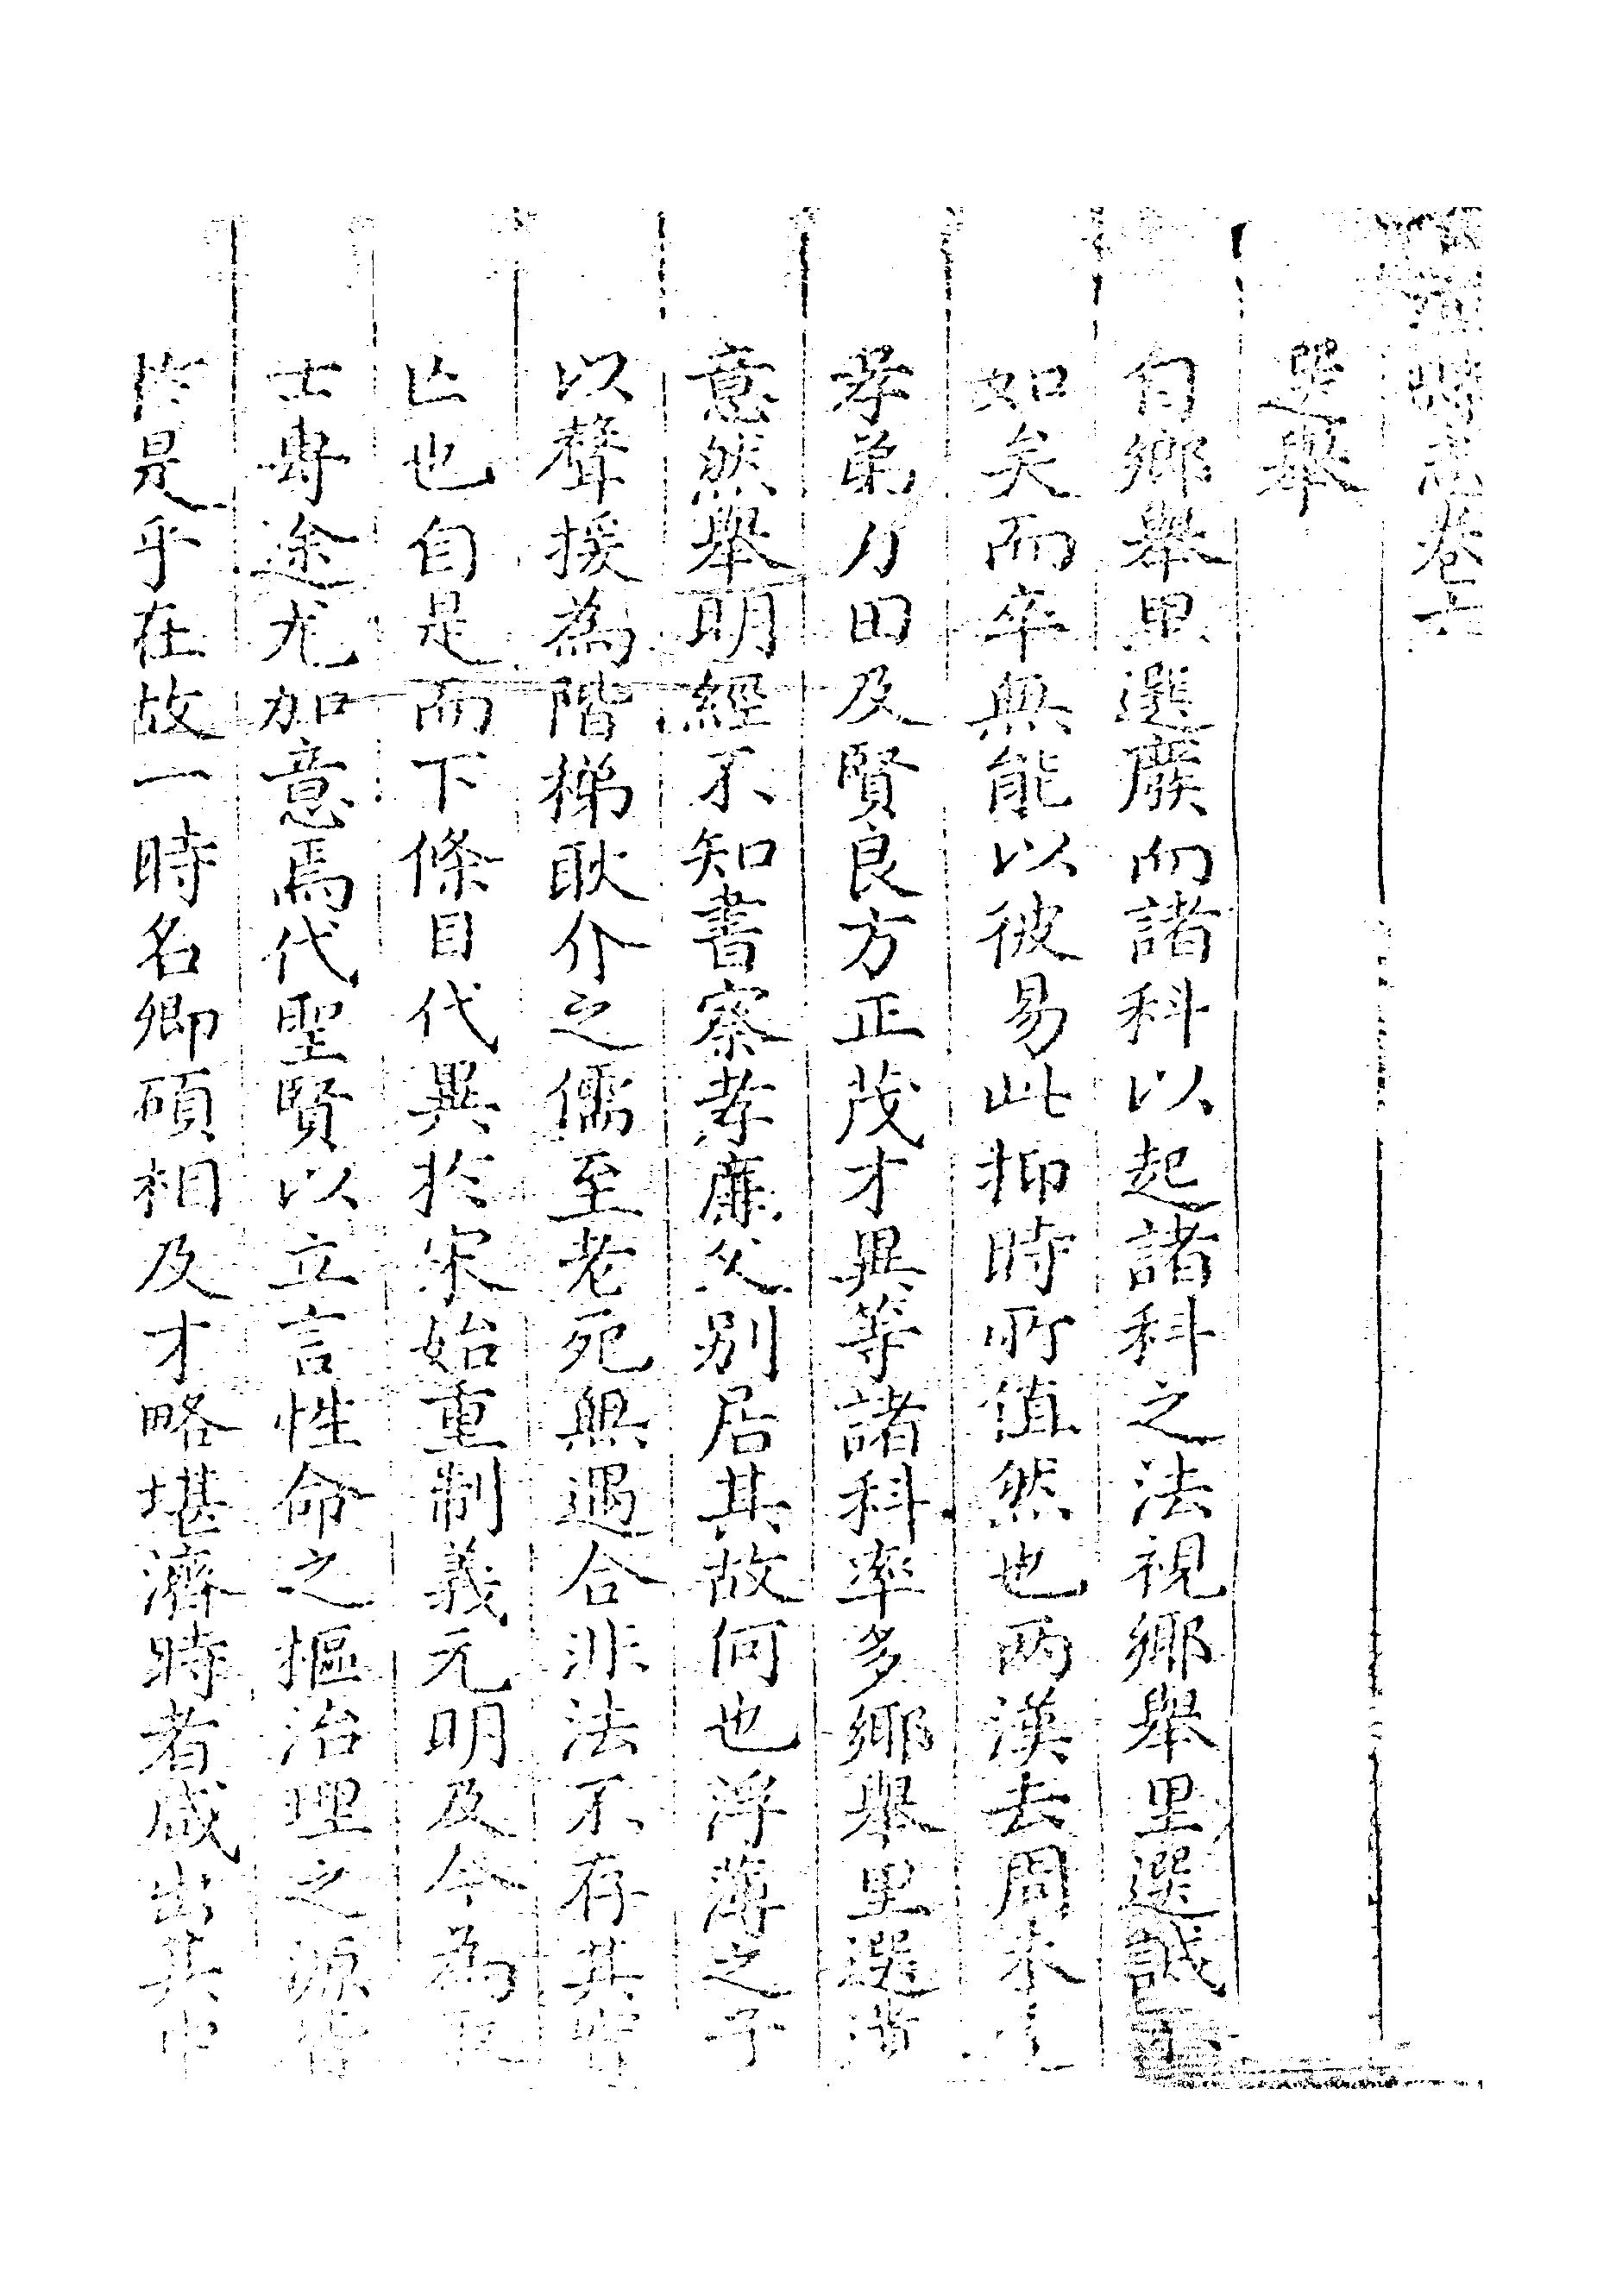 志卷六
選舉
自鄉舉里選廢而諸科以起諸科之法視鄉舉里選誠不
如矣而卒無能以彼易此抑時所值然也兩漢去周未遠
孝弟力田及賢良方正茂才異等諸科率多鄉舉里選遺
意然舉明經不知書察孝廉父別居其故何也浮薄之子
以聲援為階梯耿介之儒至老死無遇合非法不存其實
亡也自是而下條目代異於宋始重制義元明及今為取
士專途尤加意焉代聖賢以立言性命之樞治理之源皆
於是乎在故一時名卿碩相及才略堪濟時者咸出其中